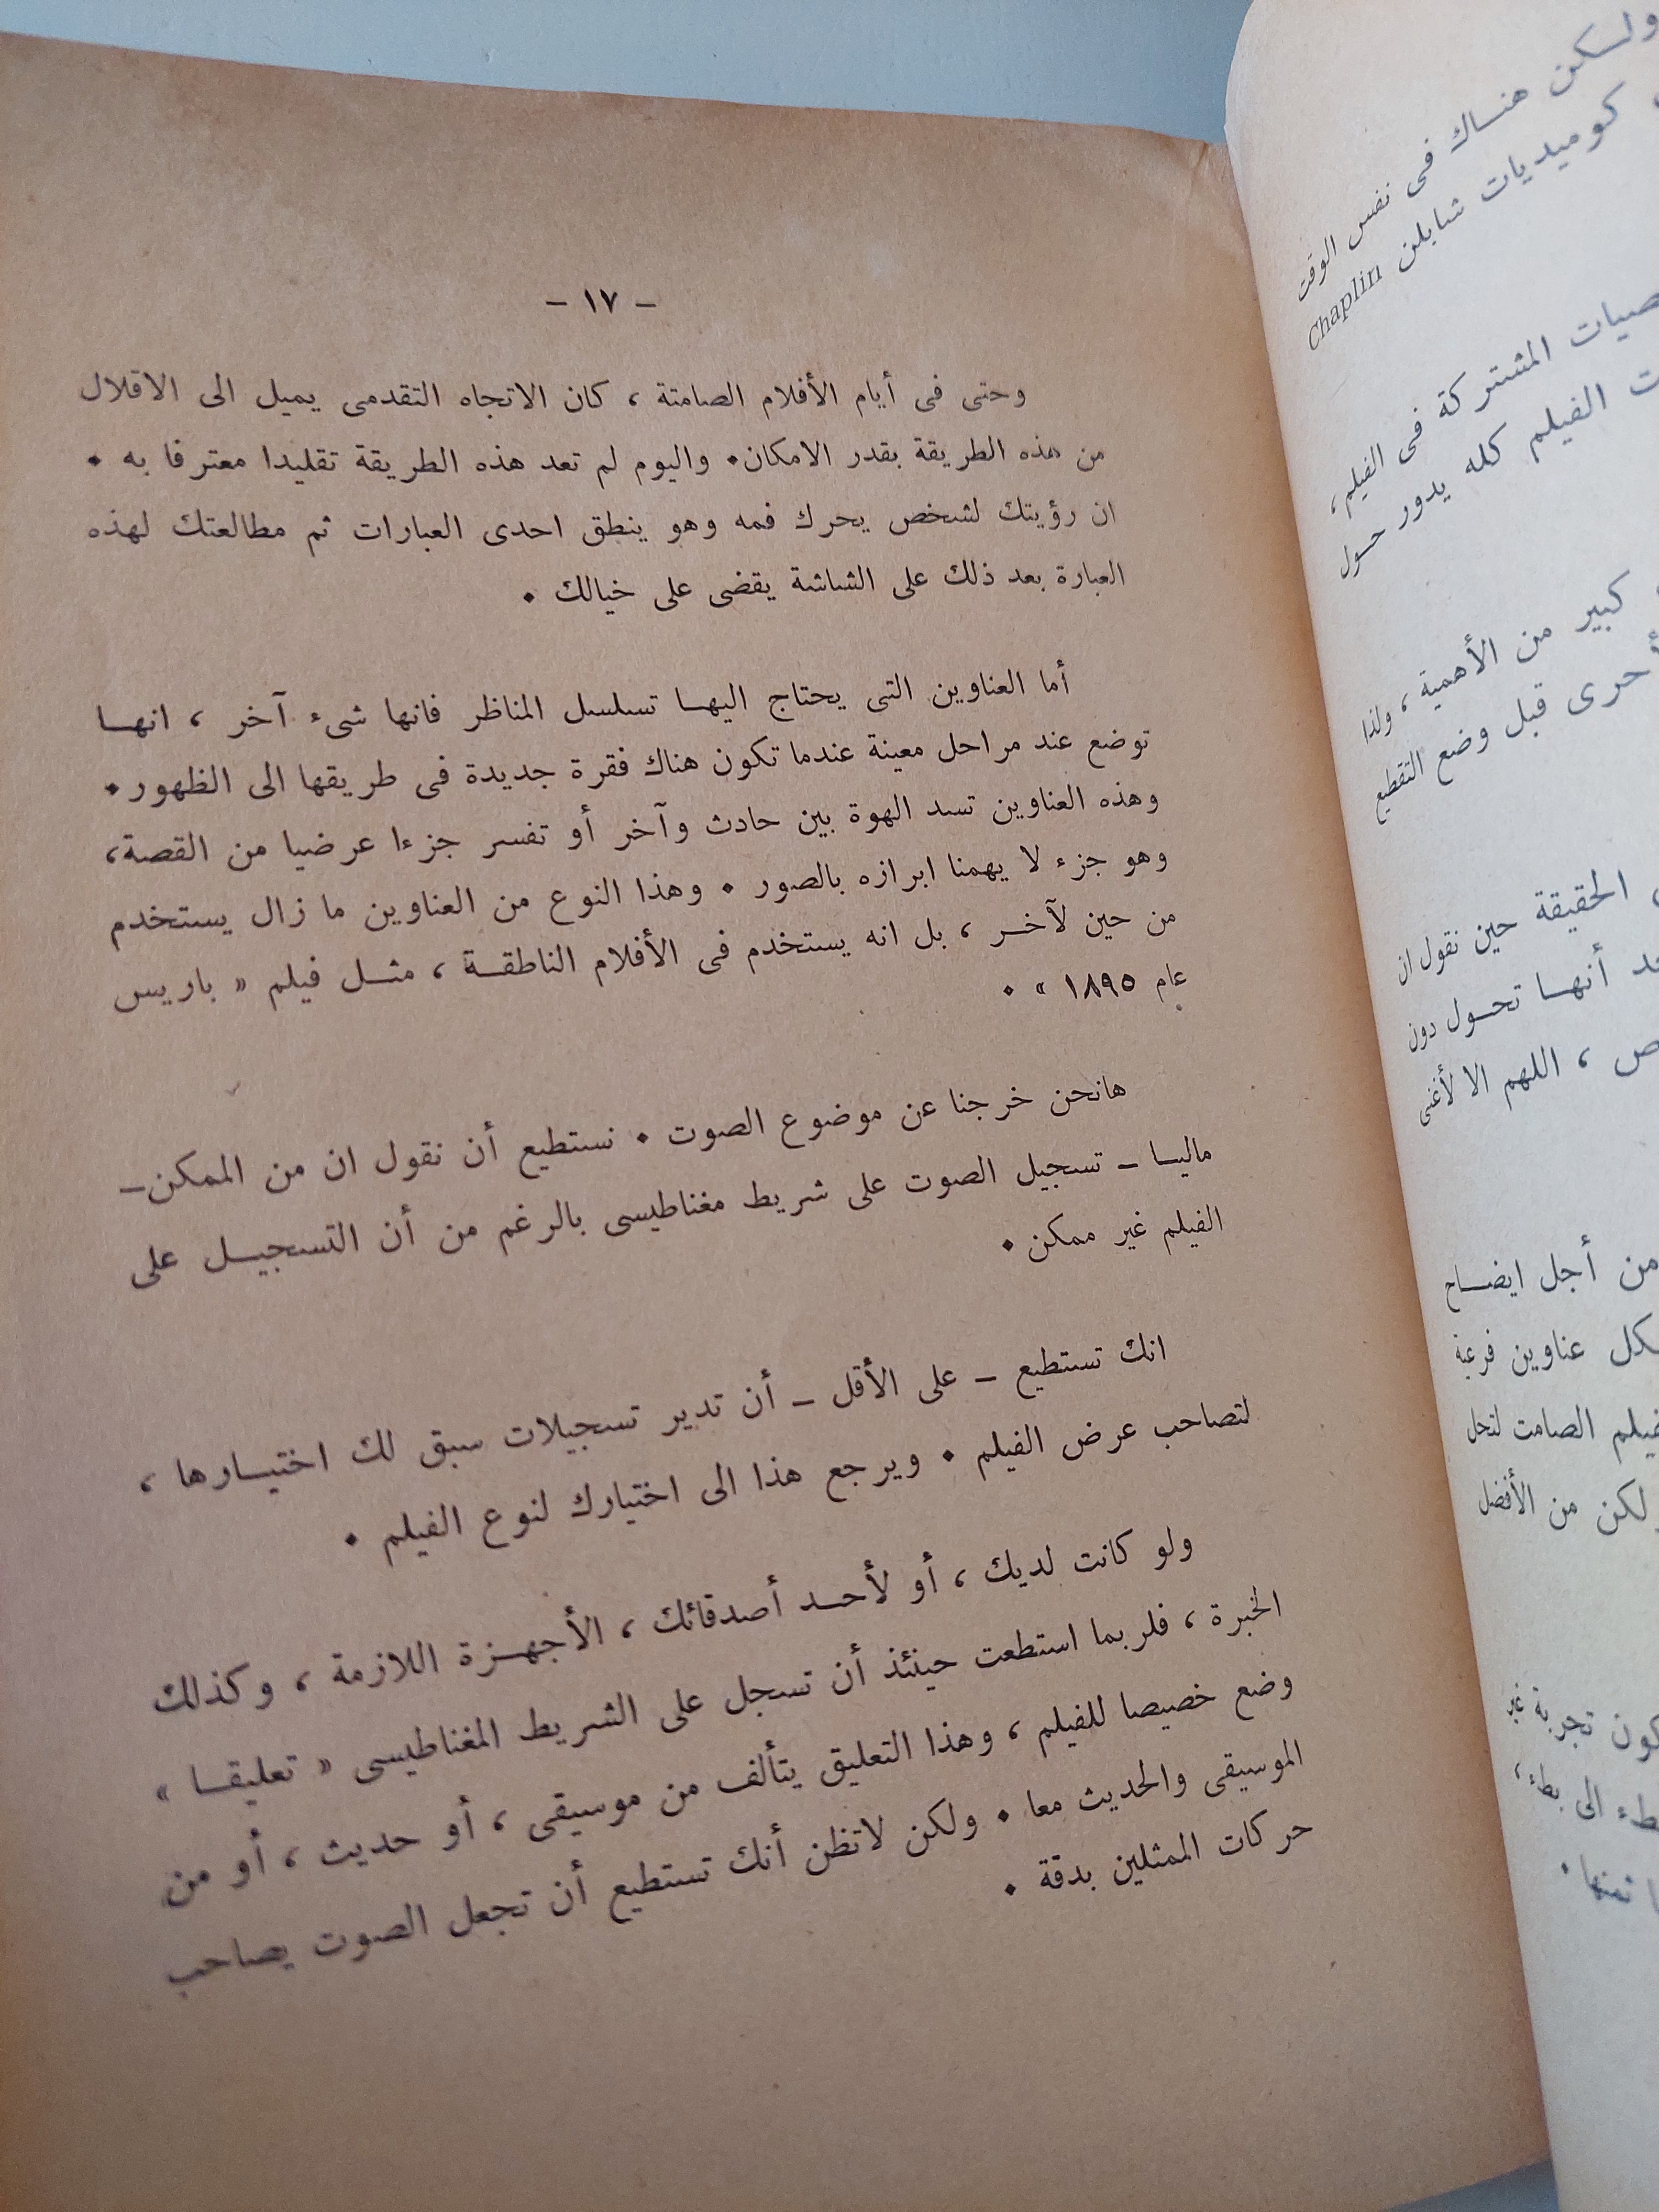 - ١٧ -
وحتى فى أيام الأفلام الصامتة ، كان الاتجاه التقدمى يميل الى الاقلال
من هذه الطريقة بقدر الامكان. واليوم لم تعد هذه الطريقة تقليدا معترفا به .
ان رؤيتك لشخص يحرك فمه وهو ينطق احدى العبارات ثم مطالعتك لهذه
العبارة بعد ذلك على الشاشة يقضى على خيالك .
أما العناوين التى يحتاج اليها تسلسل المناظر فانها شىء آخر ، انها
توضع عند مراحل معينة عندما تكون هناك فقرة جديدة فى طريقها الى الظهور.
وهذه العناوين تسد الهوة بين حادث وآخر أو تفسر جزءا عرضيا من القصة،
وهو جزء لا يهمنا ابرازه بالصور . وهذا النوع من العناوين ما زال يستخدم
من حين لآخر ، بل انه يستخدم فى الأفلام الناطقة ، مثل فيلم « باريس
عام ١٨٩٥ » .
هانحن خرجنا عن موضوع الصوت . نستطيع أن نقول ان من الممكن-
ماليا - تسجيل الصوت على شريط مغناطيسى بالرغم من أن التسجيل على
الفيلم غير ممكن .
انك تستطيع - على الأقل - أن تدير تسجيلات سبق لك اختيارها ،
لتصاحب عرض الفيلم . ويرجع هذا الى اختيارك لنوع الفيلم .
ولو كانت لديك ، أو لأحد أصدقائك ، الأجهزة اللازمة ، وكذلك
الخبرة ، فلربما استطعت حينئذ أن تسجل على الشريط المغناطيسى « تعليقا »
وضع خصيصا للفيلم ، وهذا التعليق يتألف من موسيقى ، أو حديث ، أو من
الموسيقى والحديث معا . ولكن لاتظن أنك تستطيع أن تجعل الصوت يصاحب
حركات الممثلين بدقة .
ولكن هناك فى نفس الوقت
كوميديات شابلن Chaplin
المشتركة فى الفيلم ،
الفيلم كله يدور حول
كبير من الأهمية ، ولذا
أحرى قبل وضع التقطيع
الحقيقة حين نقول ان
أنها تحول دون
، اللهم الا لأغنى
من أجل ايضاح
عناوين فرعية
الصامت لتحل
ولكن من الأفضل
تجربة غير
الى بطء ،